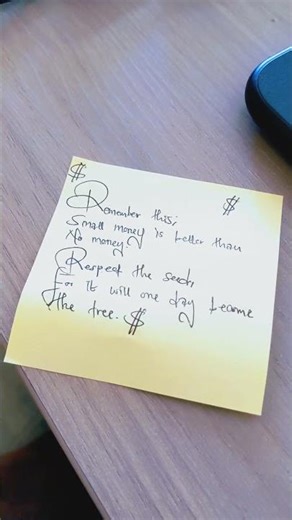 $ $
Remember this;
Small money is better than
No money.
Respect the seed,
For it will one day become
the tree. $